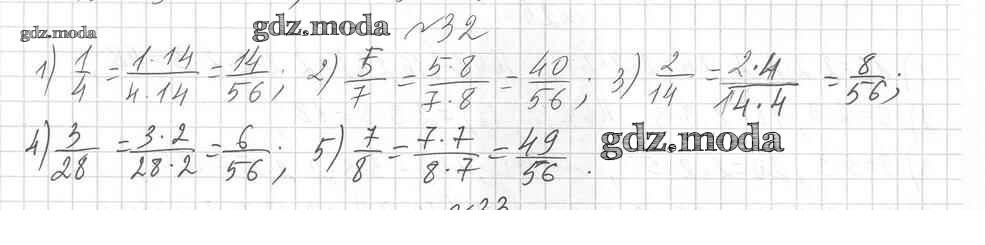 gdz.moda gdz.moda №32
1) 1/4 = 1·14/4·14 = 14/56; 2) 5/7 = 5·8/7·8 = 40/56; 3) 2/14 = 2·4/14·4 = 8/56;
4) 3/28 = 3·2/28·2 = 6/56; 5) 7/8 = 7·7/8·7 = 49/56. gdz.moda